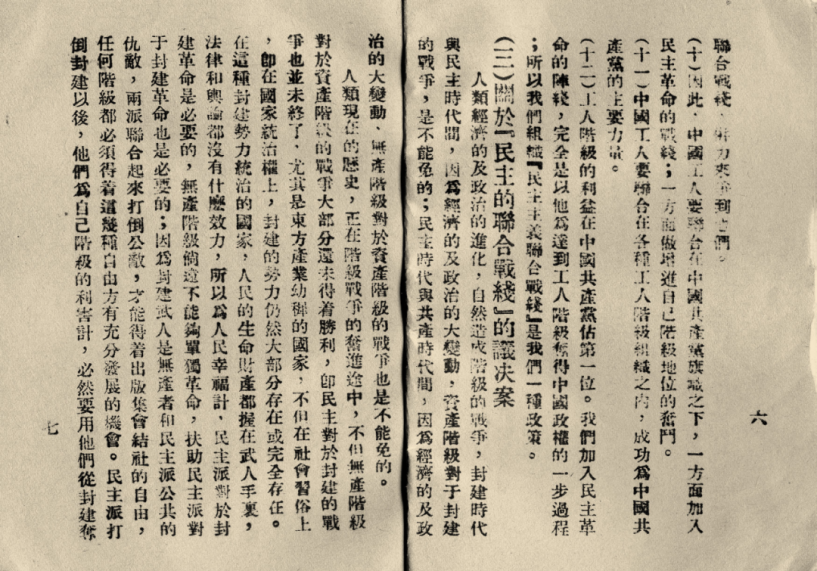 聯合戰綫，
（十）因此，中國工人要聯合在中國共產黨旗幟之下，一方面加入
民主革命的戰綫；一方面做增進自己階級地位的奮鬥。
（十一）中國工人要聯合在各種工人階級組織之內，成功爲中國共
產黨的主要力量。
（十二）工人階級的利益在中國共產黨佔第一位。我們加入民主革
命的陣綫，完全是以他爲達到工人階級奪得中國政權的一步過程
；所以我們組織『民主主義聯合戰綫』是我們一種政策。
（三）關於『民主的聯合戰綫』的議决案
人類經濟的及政治的進化，自然造成階級的戰爭，封建時代
與民主時代間，因爲經濟的及政治的大變動，資產階級對于封建
的戰爭，是不能免的；民主時代與共產時代間，因爲經濟的及政
六
治的大變動，無產階級對於資產階級的戰爭也是不能免的。
人類現在的歷史，正在階級戰爭的奮進途中，不但無產階級
對於資產階級的戰爭大部分還未得着勝利，卽民主對於封建的戰
爭也並未終了，尤其是東方產業幼稚的國家，不但在社會習俗上
，卽在國家統治權上，封建的勢力仍然大部分存在或完全存在。
在這種封建勢力統治的國家，人民的生命財產都握在武人手裏，
法律和輿論都沒有什麽效力，所以爲人民幸福計，民主派對於封
建革命是必要的，無產階級倘還不能夠單獨革命，扶助民主派對
于封建革命也是必要的；因爲封建武人是無產者和民主派公共的
仇敵，兩派聯合起來打倒公敵，才能得着出版集會結社的自由，
任何階級都必須得着這幾種自由方有充分發展的機會。民主派打
倒封建以後，他們爲自己階級的利害計，必然要用他們從封建奪
七